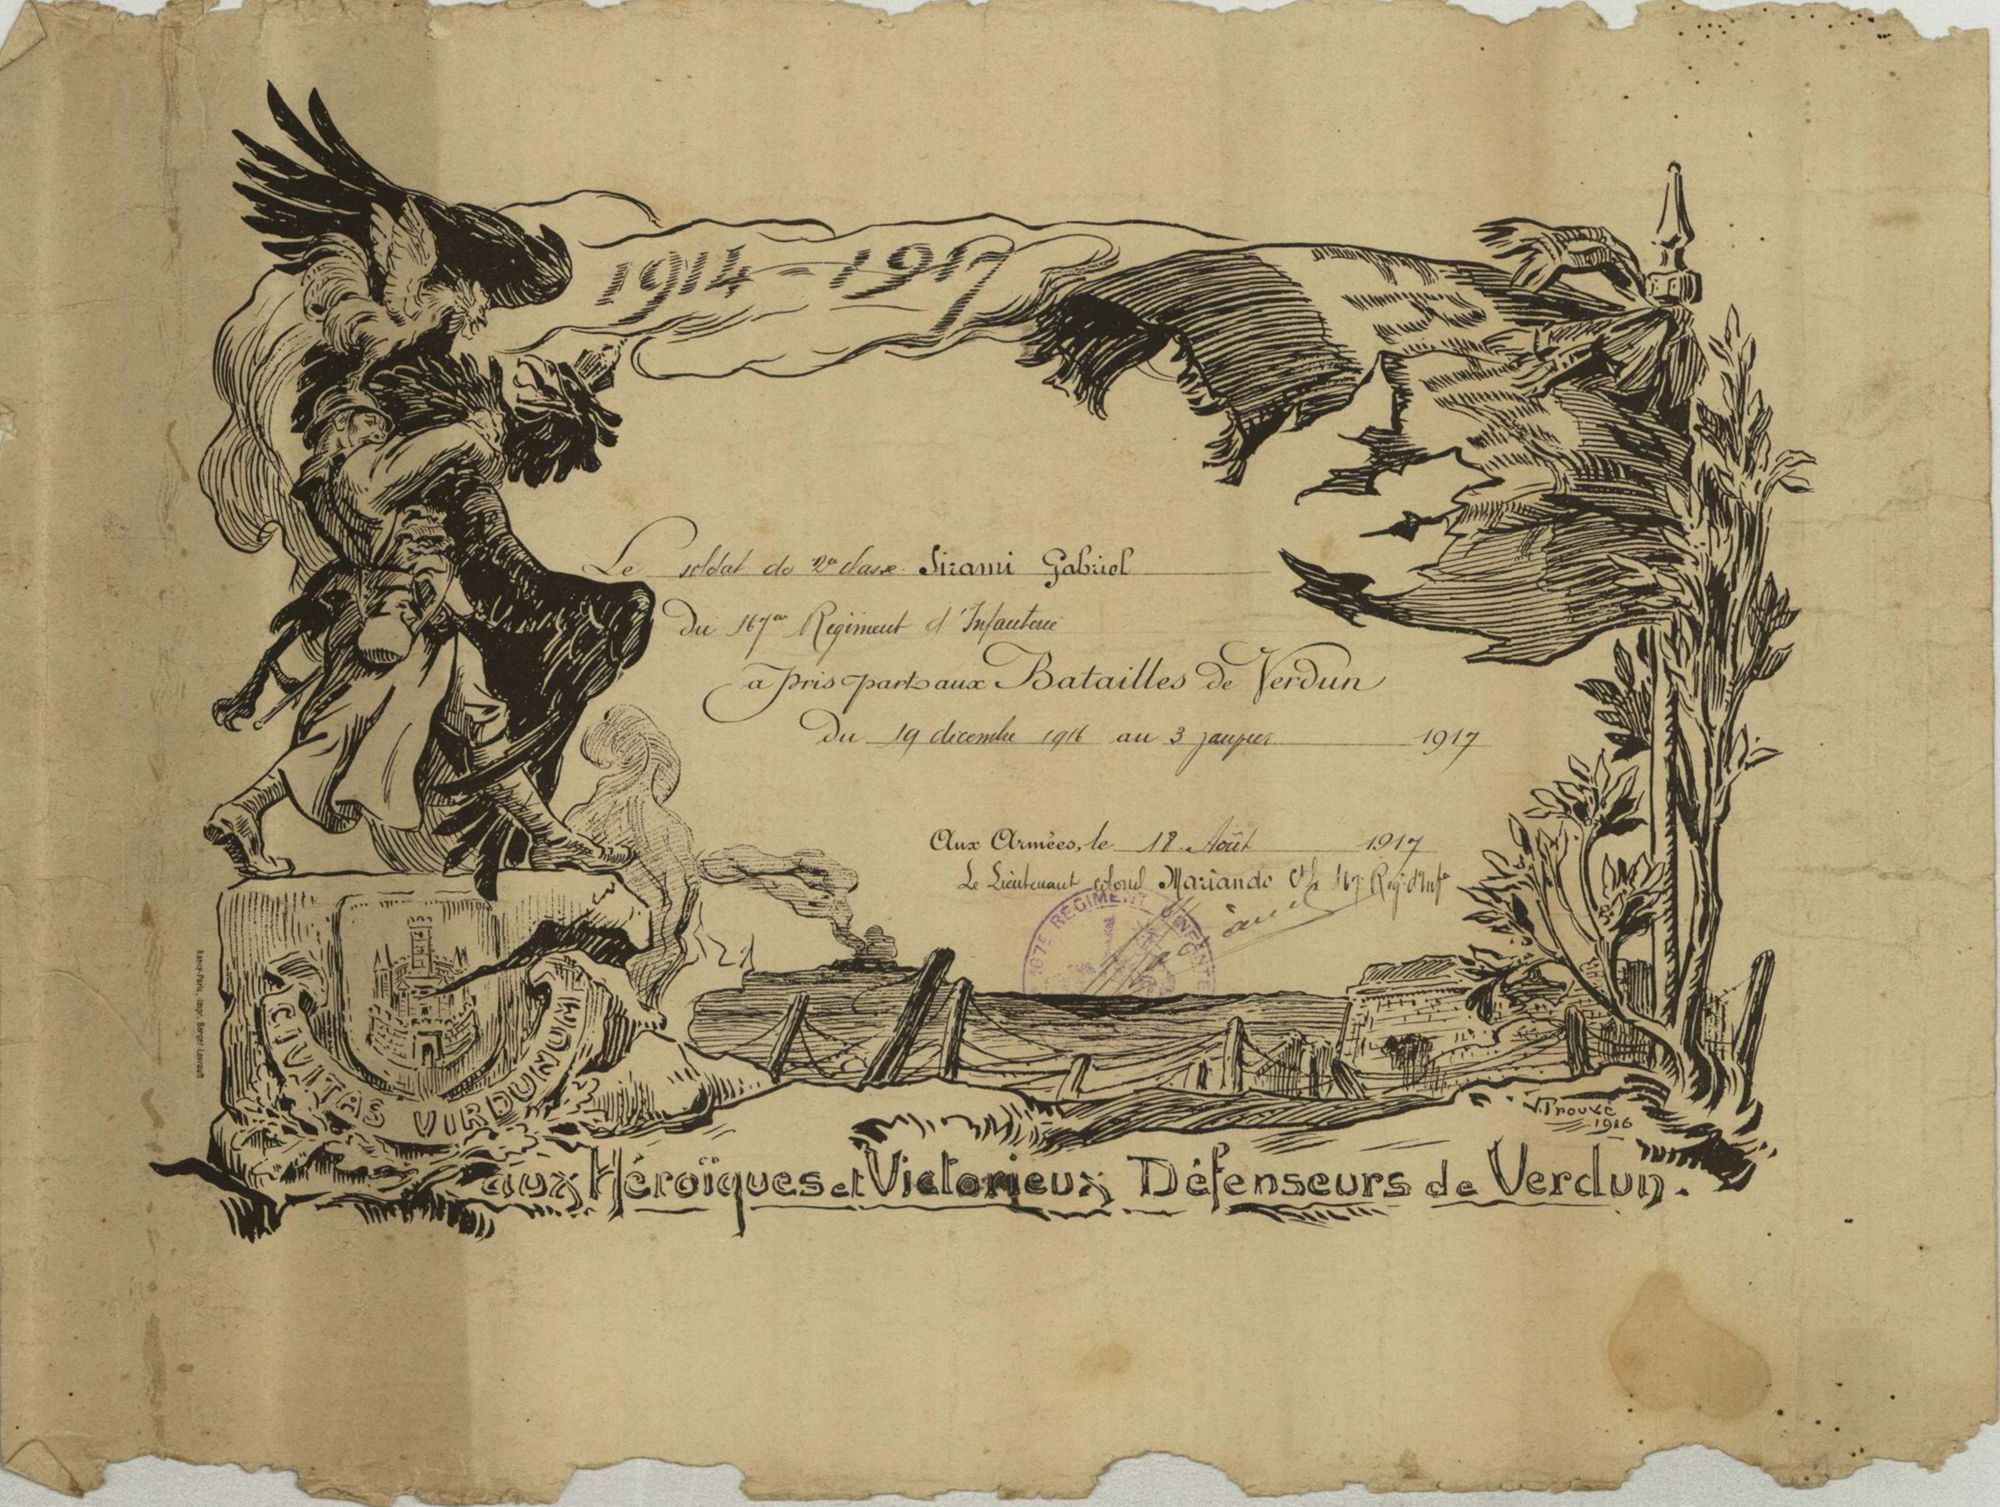 1914-1917
Le soldat de 2e classe Sirami Gabriel
Du 167e Régiment d'Infanterie
a pris part aux Batailles de Verdun
Du 19 décembre 1916 au 3 janvier 1917
Aux Armées, le 18 Août 1917
Le Lieutenant colonel Mariande Ct le 167e Reg. d'Infie
167E REGIMENT D'INFANTE
CIVITAS VIRDUNUM
V. Prouvé
1916
aux Héroïques et Victorieux Défenseurs de Verdun.
Nancy-Paris, Impr. Berger-Levrault